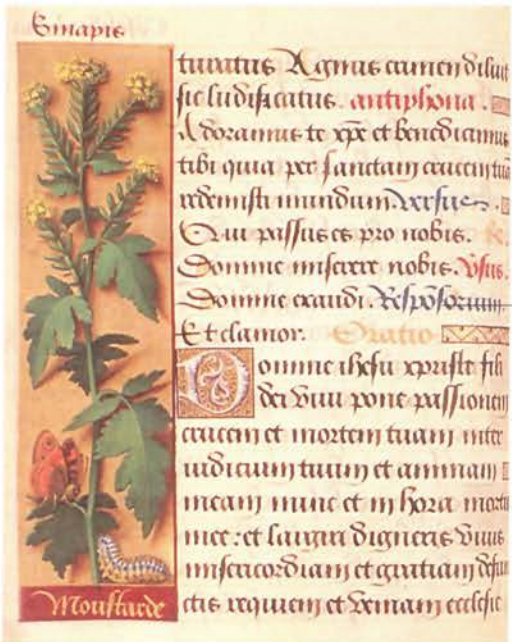 Sinapis
turatus Agnus crimen diluit
sic ludificatus. antiphona.
Adoramus te xpe et benedicimus
tibi quia per sanctam crucem tuā
redemisti mundum. Versus.
Qui passus es pro nobis.
Domine miserere nobis. Vsus.
Domine exaudi. Respōsorium.
Et clamor. Oratio
Domine ihesu xpriste fili
dei viui pone passionem
crucem et mortem tuam inter
iudicium tuum et animam
meam nunc et in hora mortis
mee: et largiri digneris viuis
misericordiam et gratiam defun
ctis requiem et veniam ecclesie
Moustarde